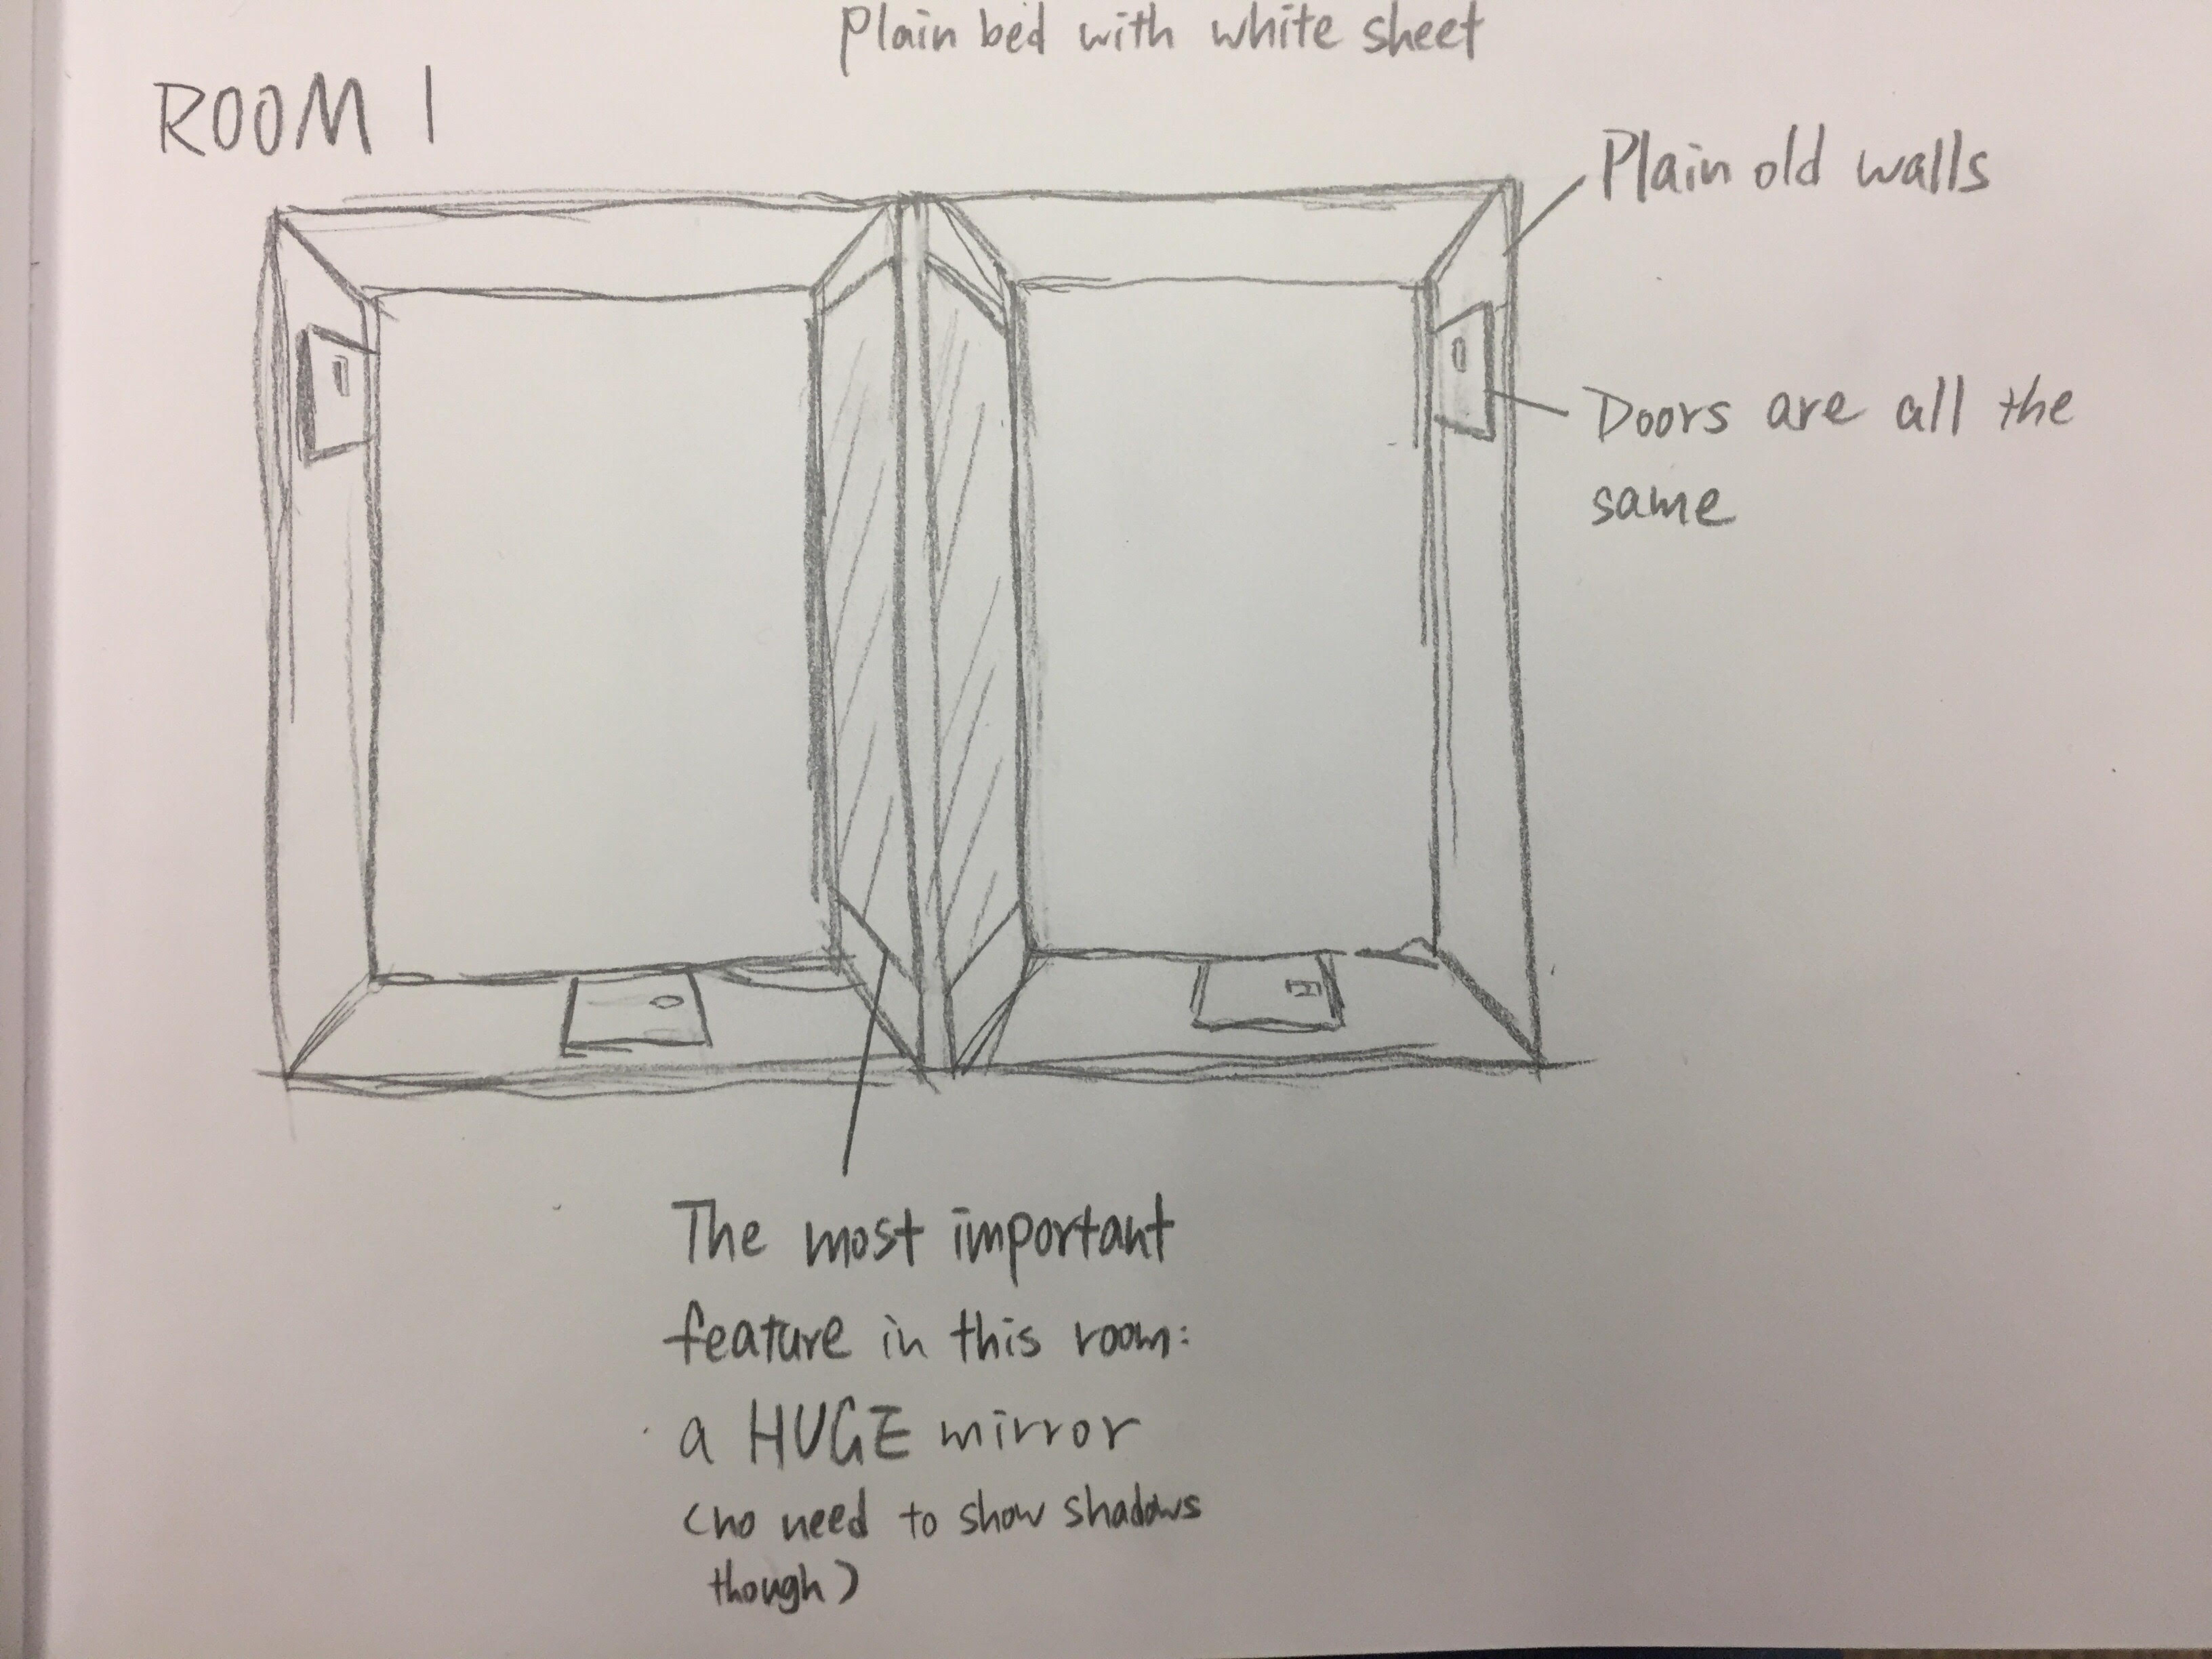 Plain bed with white sheet
ROOM 1
Plain old walls
Doors are all the
same
The most important
feature in this room:
a HUGE mirror
(no need to show shadows
though)